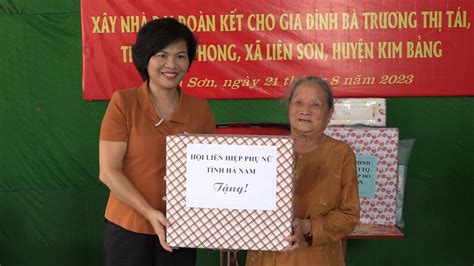 XÂY NHÀ ĐẠI ĐOÀN KẾT CHO GIA ĐÌNH BÀ TRƯƠNG THỊ TÁI,
PHONG, XÃ LIÊN SƠN, HUYỆN KIM BẢNG
Sơn, ngày 21 8 năm 2023
HỘI LIÊN HIỆP PHỤ NỮ
TỈNH HÀ NAM
Tặng!